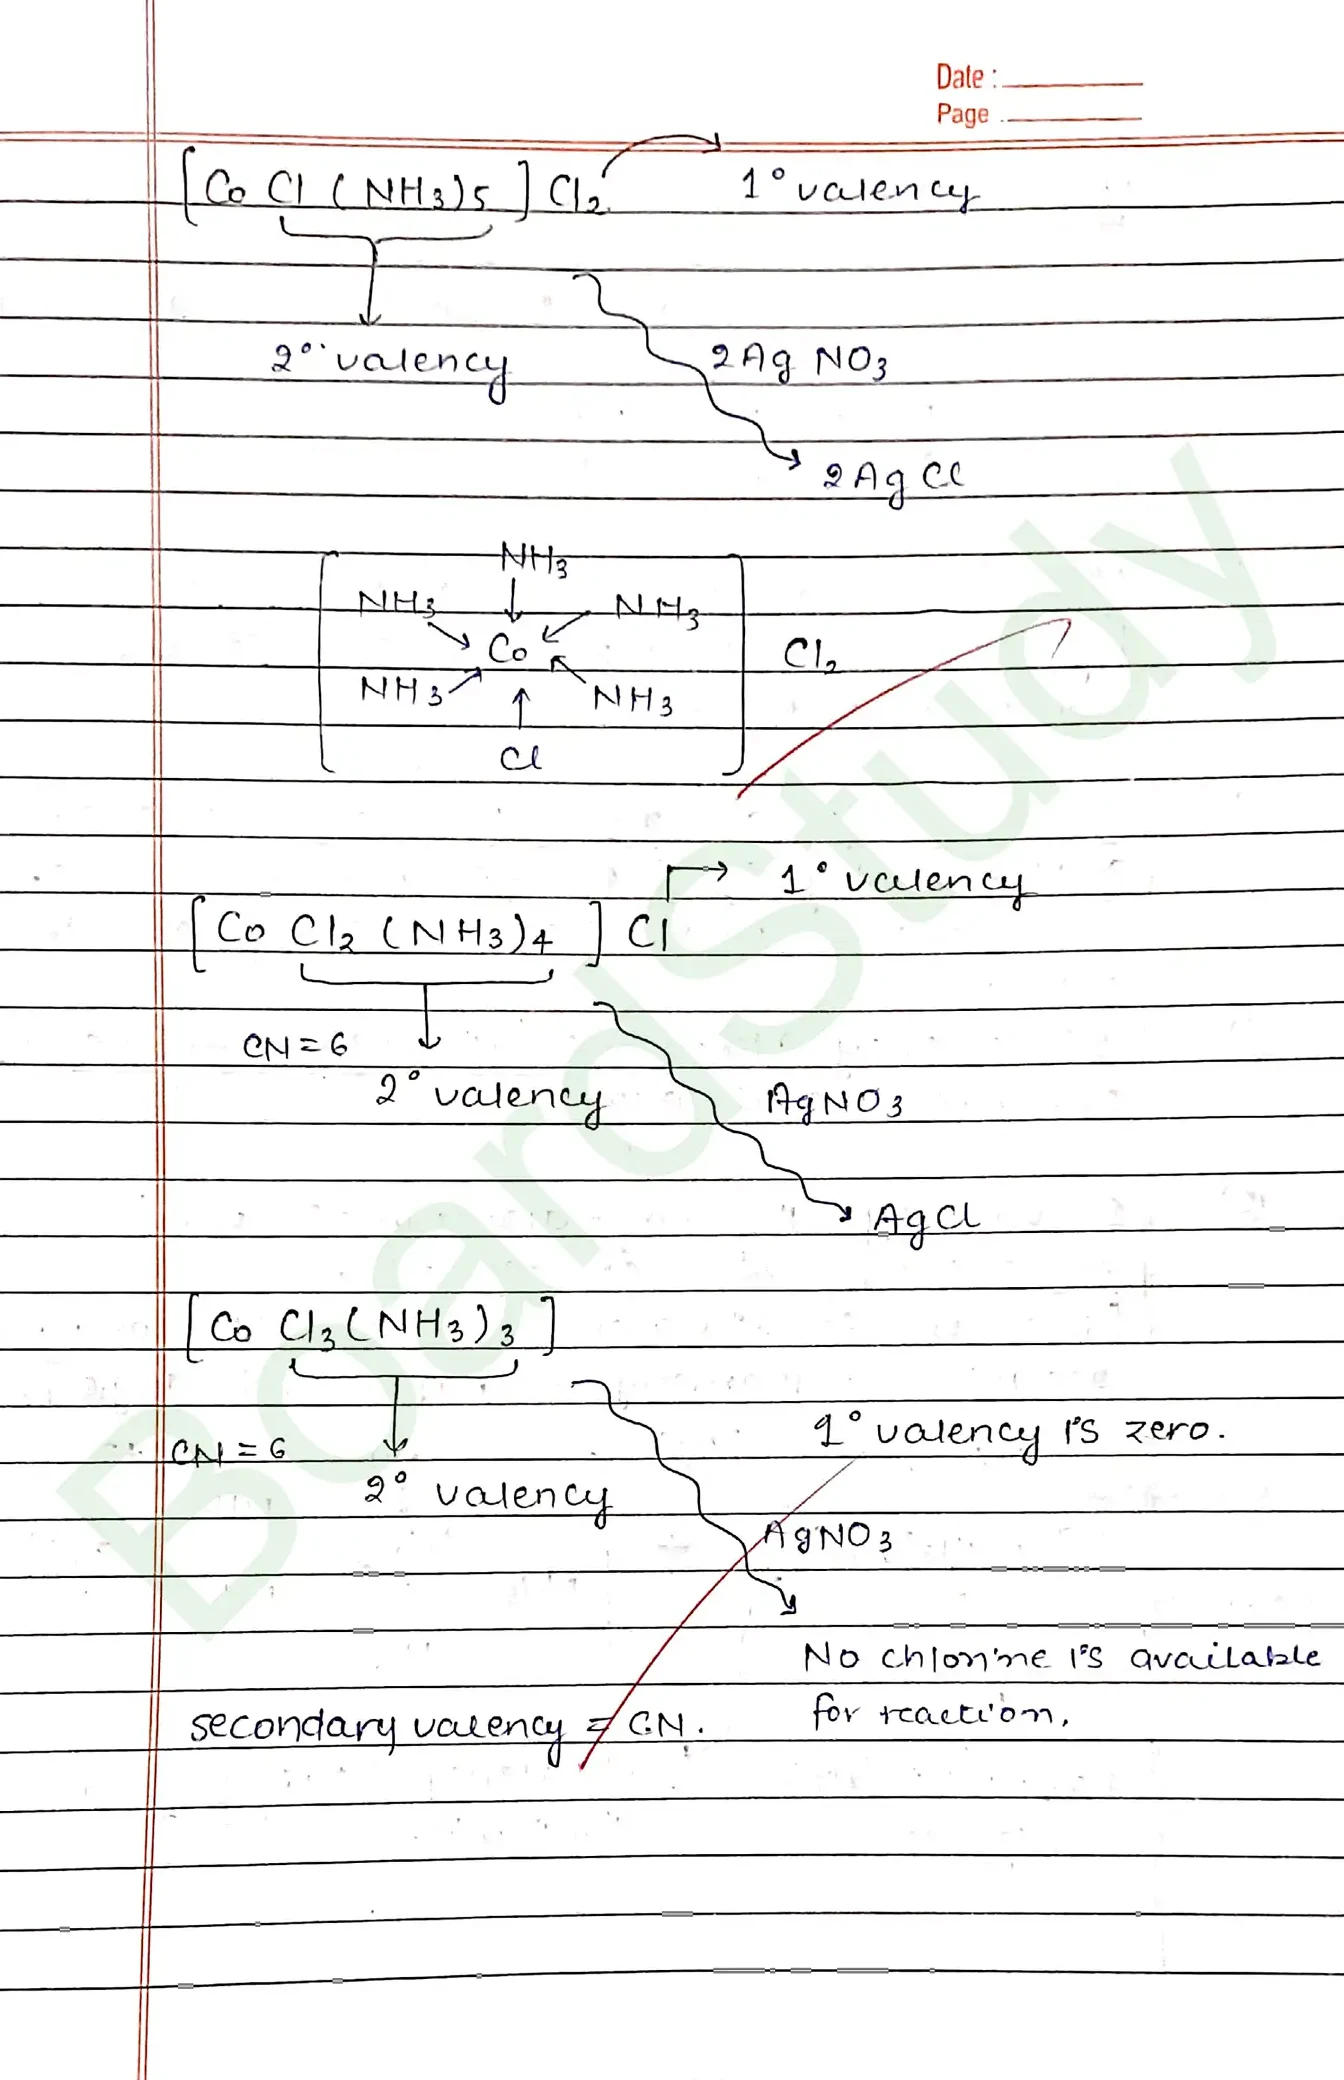 Date :
Page
[Co Cl (NH3)5] Cl2 → 1° valency
2° valency
2AgNO3
2AgCl
NH3
NH3 NH3
Co
Cl2
NH3 NH3
Cl
1° valency
[Co Cl2 (NH3)4] Cl
CN = 6
2° valency
AgNO3
AgCl
[Co Cl3 (NH3)3]
1° valency is zero.
CN = 6
2° valency
AgNO3
No chlorine is available
for reaction.
secondary valency = C.N.
BoardStudy